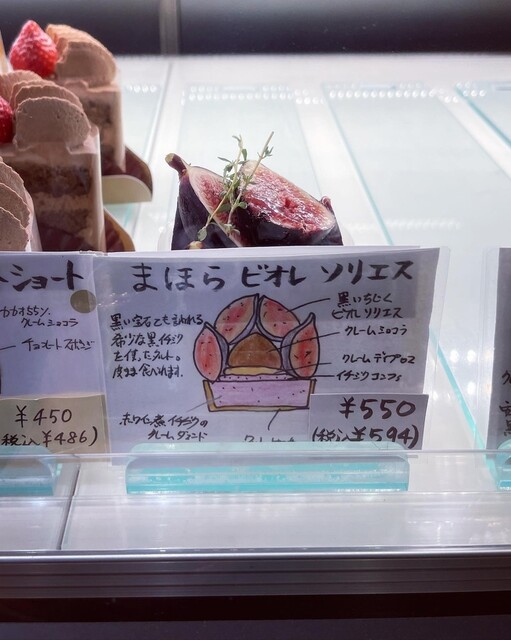 ショート
カカオ55%
クレームショコラ
チョコレートスポンジ
¥450
(税込¥486)
まほら ビオレ ソリエス
黒い宝石とも言われる
希少な黒イチジク
を使ったタルト。
皮まで食べれます。
黒いちじく
ビオレソリエス
クレームショコラ
クレームディプロマ
イチジクコンフィ
赤ワイン煮イチジクの
クレームダマンド
¥550
(税込¥594)